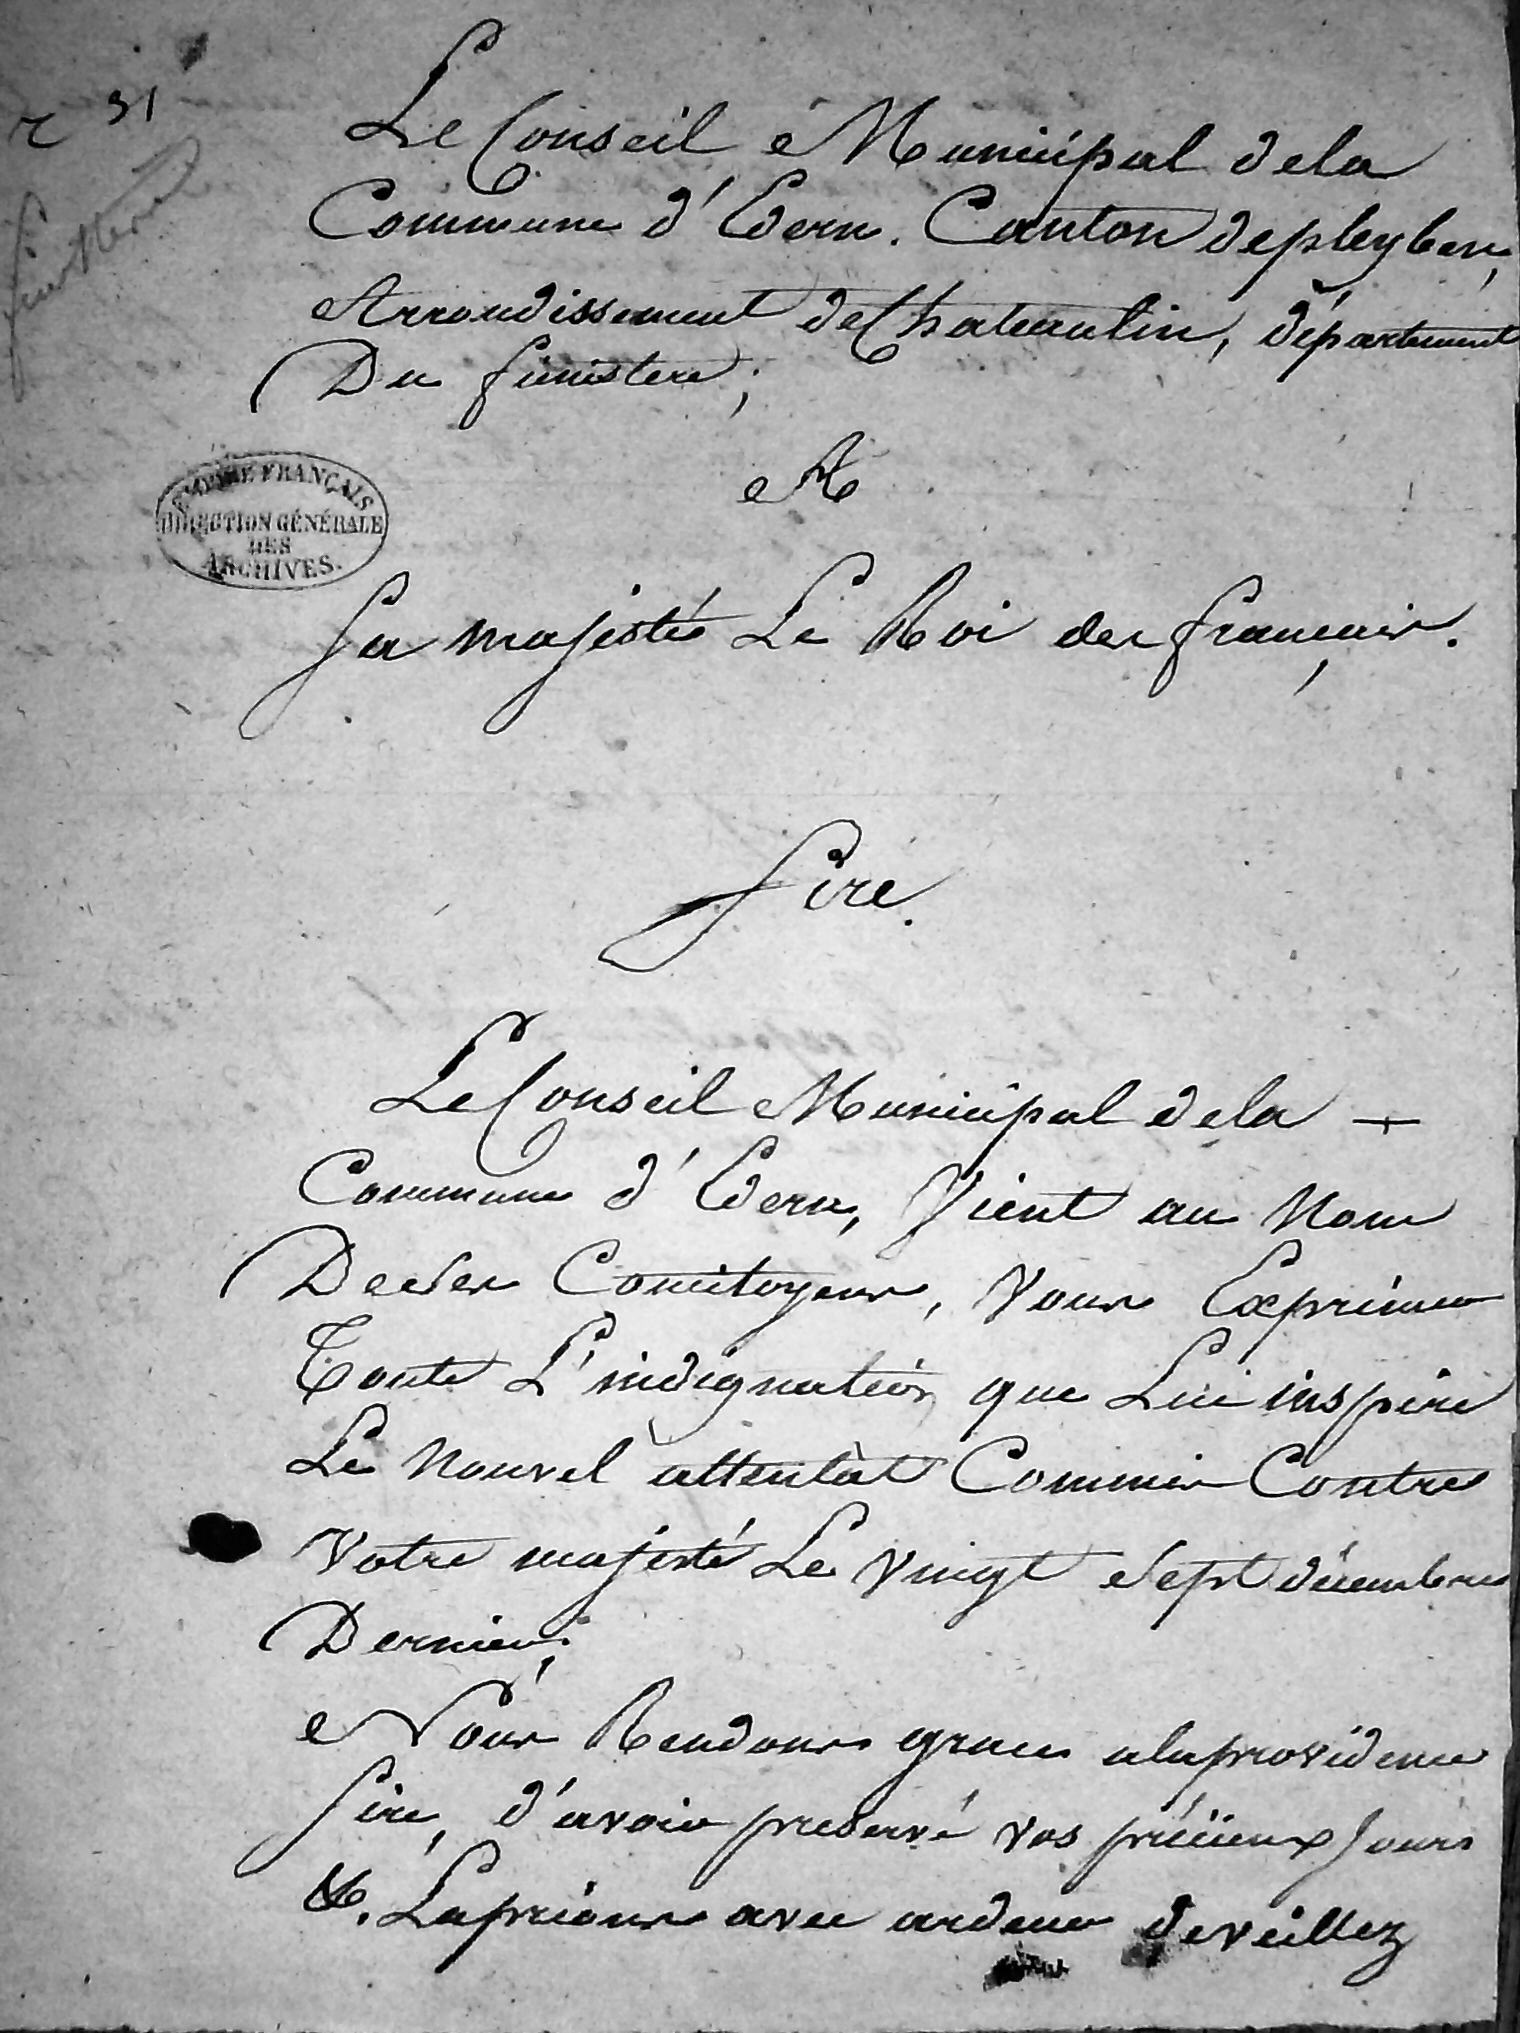 r 31
finistere
Le Conseil Municipal dela
Commune d'Edern. Canton depleyben,
Arrondissement deChateaulin, département
Du finistere;
EMPIRE FRANÇAIS
DIRECTION GÉNÉRALE
DES
ARCHIVES.
A
Sa majesté Le Roi des français.
Sire.
Le Conseil Municipal dela
Commune d'Edern, Vient au Nom
De ses Concitoyens, Vous Exprimer
Toute L'indignation que Lui inspire
Le Nouvel attentat Commis Contre
Votre majesté Le Vingt Sept décembre
Dernier;
Nous Rendons graces alaprovidence
Sire, d'avoir preservé vos précieux Jours
&. Laprions avec ardeur deveillez